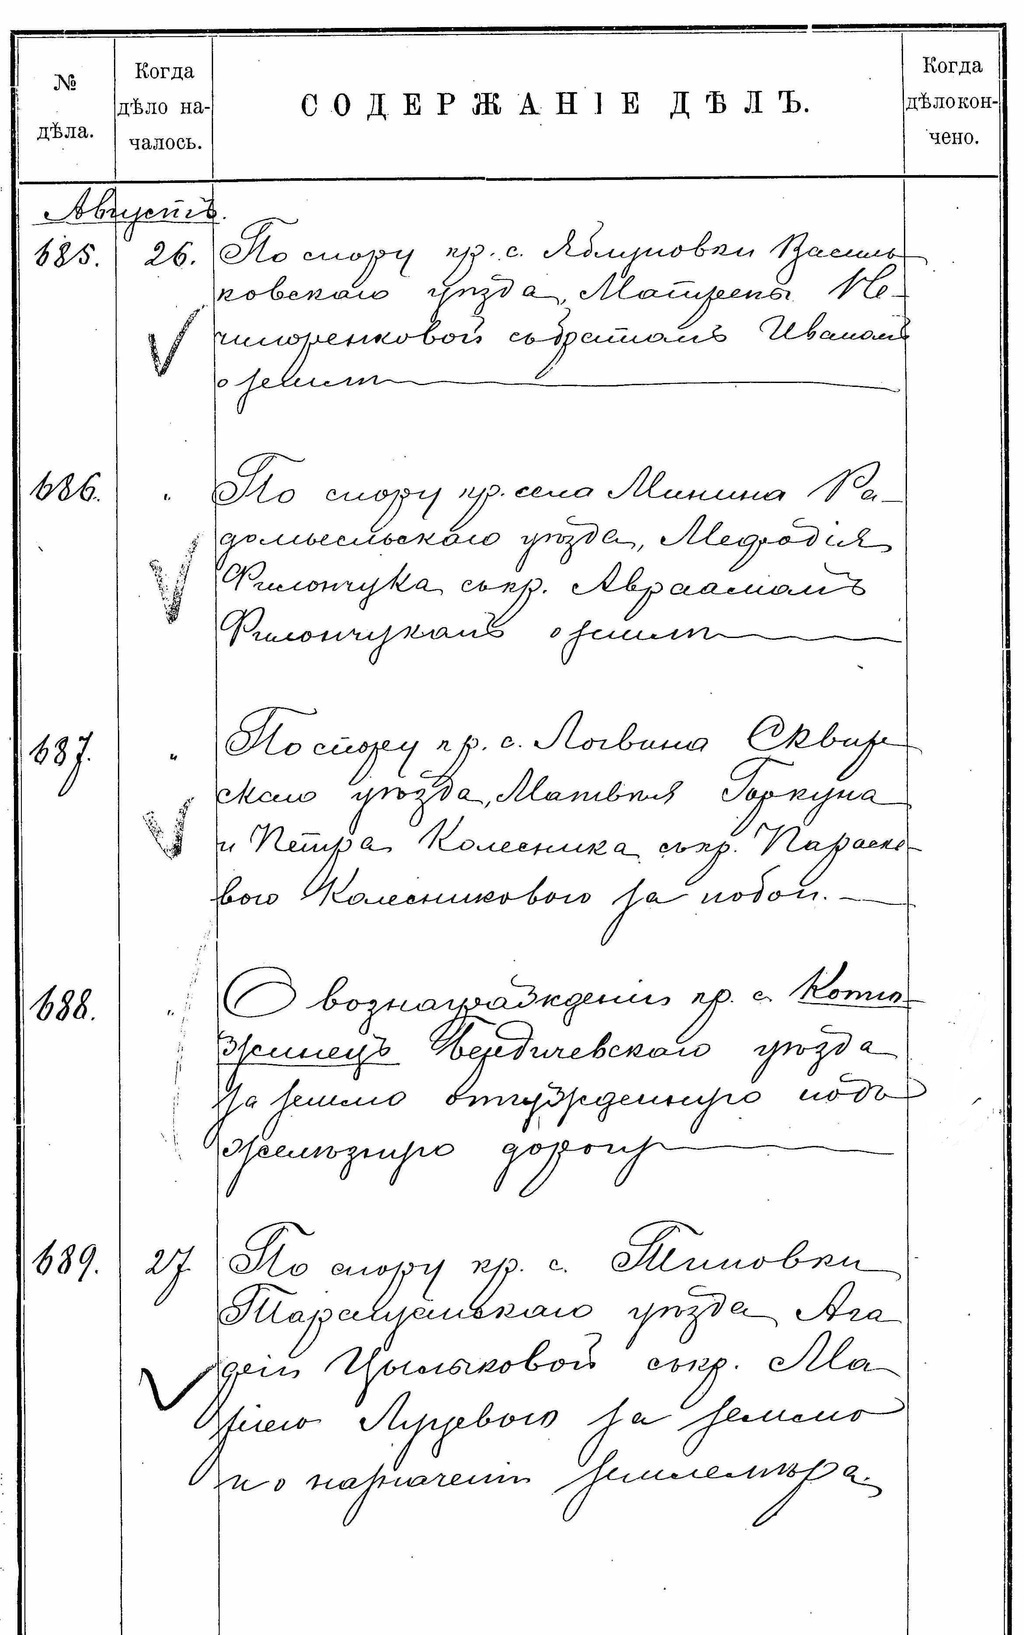 № дѣла.
Когда дѣло началось.
СОДЕРЖАНІЕ ДѢЛЪ.
Когда дѣло кончено.
Августъ.
685. 26. По спору кр. с. Яблуновки Василь-
ковскаго уѣзда, Матрены Не-
чипоренковой съ братомъ Иваномъ
о землѣ
686. " По спору кр. села Минина Ра-
домысльскаго уѣзда, Мефодія
Филончука съ кр. Авраамомъ
Филончукомъ о землѣ
687. " По спору кр. с. Логвина Сквир-
скаго уѣзда, Матвѣя Горкуна
и Петра Колесника съ кр. Параске-
вою Колесниковою за побои.
688. " О вознагражденіи кр. с. Котю-
жинецъ Бердичевскаго уѣзда
за землю отчужденную подъ
желѣзную дорогу
689. 27. По спору кр. с. Типовки
Таращанскаго уѣзда Ага
фіи съ кр. Ма
ріею за землю
и о назначеніи землемѣра.